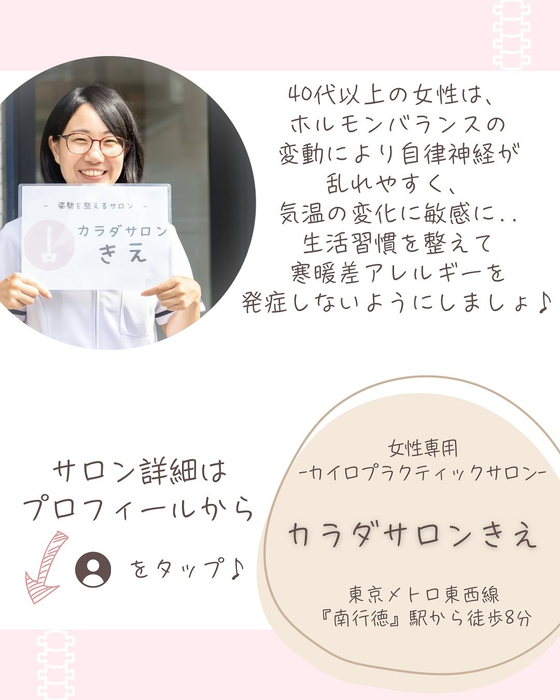 40代以上の女性は、
ホルモンバランスの
変動により自律神経が
乱れやすく、
気温の変化に敏感に..
生活習慣を整えて
寒暖差アレルギーを
発症しないようにしましょ♪
- 姿勢を整えるサロン -
カラダサロン
きえ
サロン詳細は
プロフィールから
をタップ♪
女性専用
-カイロプラクティックサロン-
カラダサロンきえ
東京メトロ東西線
『南行徳』駅から徒歩8分